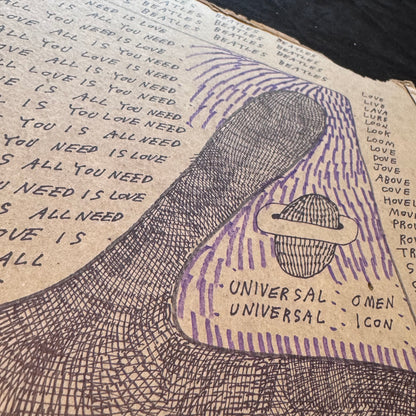 BEATLES BEATLES
BEATLES BEATLES
BEATLES BEATLES
BEATLES
ALL IS LOVE
ALL YOU NEED
YOU IS LOVE
IS ALL YOU NEED
ALL LOVE IS YOU NEED
IS ALL YOU NEED
ALL IS YOU LOVE NEED
YOU IS ALL NEED
ALL YOU NEED IS LOVE
IS ALL YOU NEED
YOU NEED IS LOVE
IS ALL NEED
OVE IS
ALL
LOVE
LIVE
LAVA
LURE
LOON
LOOK
LOOM
LOVE
DOVE
JOVE
ABOVE
COVE
HOVEL
MOV
PRO
RO
TR
S
UNIVERSAL OMEN
UNIVERSAL ICON